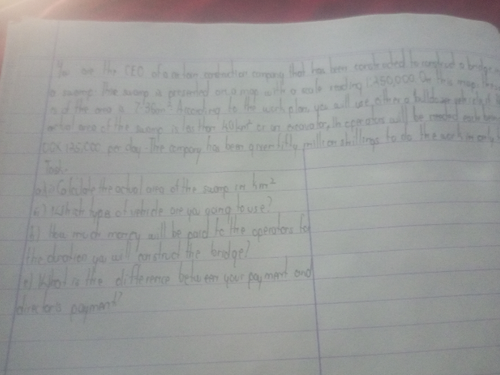 You are the CEO of a certain construction company that has been constructed to construct a bridge
a swamp. The swamp is presented on a map with a scale reading 1:250,000. On this map, the
is if the area is cm². According to the work plan, you will use either a bulldozer if
actual area of the swamp is less than 40km² or an excavator, operators will be needed each
per day. The company has been given fifty million shillings to do the work in only
Task.
Calculate the actual area of the swamp in km²
Which type of vehicle are you going to use?
How much money will be paid to the operators for
the duration you will construct the bridge?
What is the difference between your payment and
director's payment?